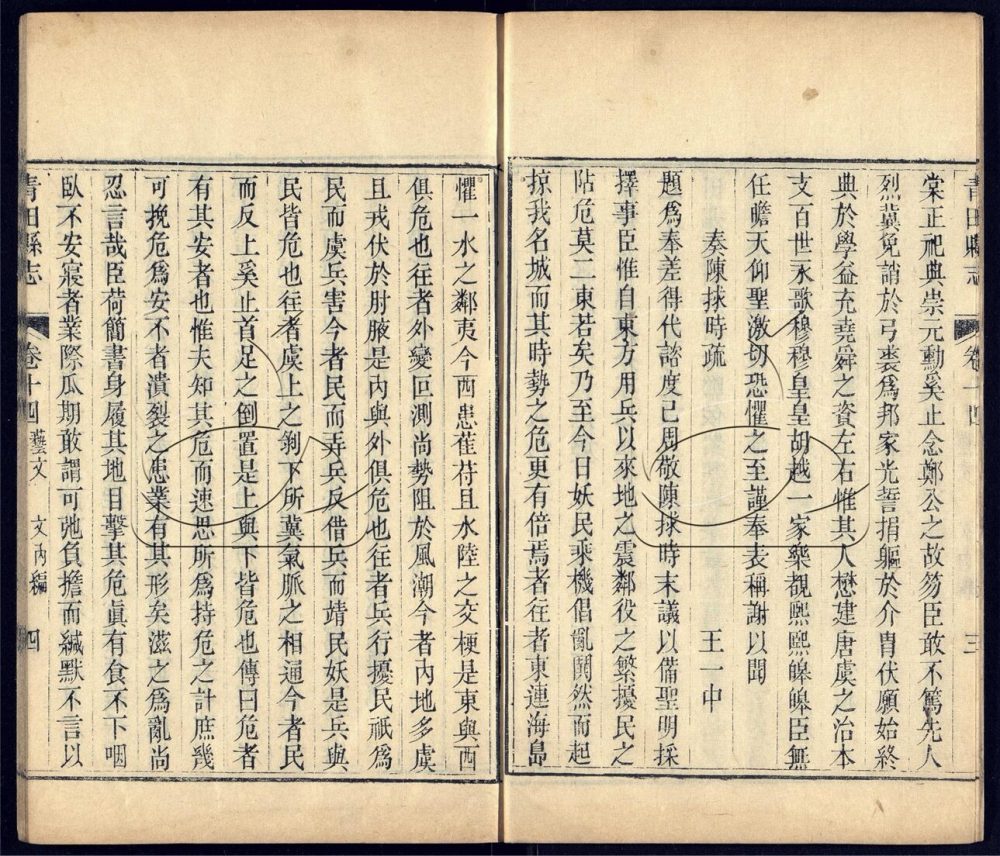 青田縣志
卷十四
三
棠正祀典崇元勳奚止念鄭公之故笏臣敢不篤先人
烈冀免誚於弓裘爲邦家光誓捐軀於介胄伏願始終
典於學益充堯舜之資左右惟其人懋建唐虞之治本
支百世永歌穆穆皇皇胡越一家樂覩熙熙皞皞臣無
任瞻天仰聖激切恐懼之至謹奉表稱謝以聞
奏陳捄時疏
王一中
題爲奉差得代諮度已周敬陳捄時末議以備聖明採
擇事臣惟自東方用兵以來地之震鄰役之繁擾民之
阽危莫二東若矣乃至今日妖民乘機倡亂鬨然而起
掠我名城而其時勢之危更有倍焉者往者東連海島
懼一水之鄰夷今西患萑苻且水陸之交梗是東與西
俱危也往者外變叵測尚勢阻於風潮今者內地多虞
且戎伏於肘腋是內與外俱危也往者兵行擾民祇爲
民而虞兵害今者民而弄兵反借兵而靖民妖是兵與
民皆危也往者虞上之剝下所冀氣脈之相通今者民
而反上奚止首足之倒置是上與下皆危也傳曰危者
有其安者也惟夫知其危而速思所爲持危之計庶幾
可挽危爲安不者潰裂之患業有其形矣滋之爲亂尚
忍言哉臣荷簡書身履其地目擊其危眞有食不下咽
臥不安寢者業際瓜期敢謂可弛負擔而緘默不言以
青田縣志
卷十四
藝文
文內編
四